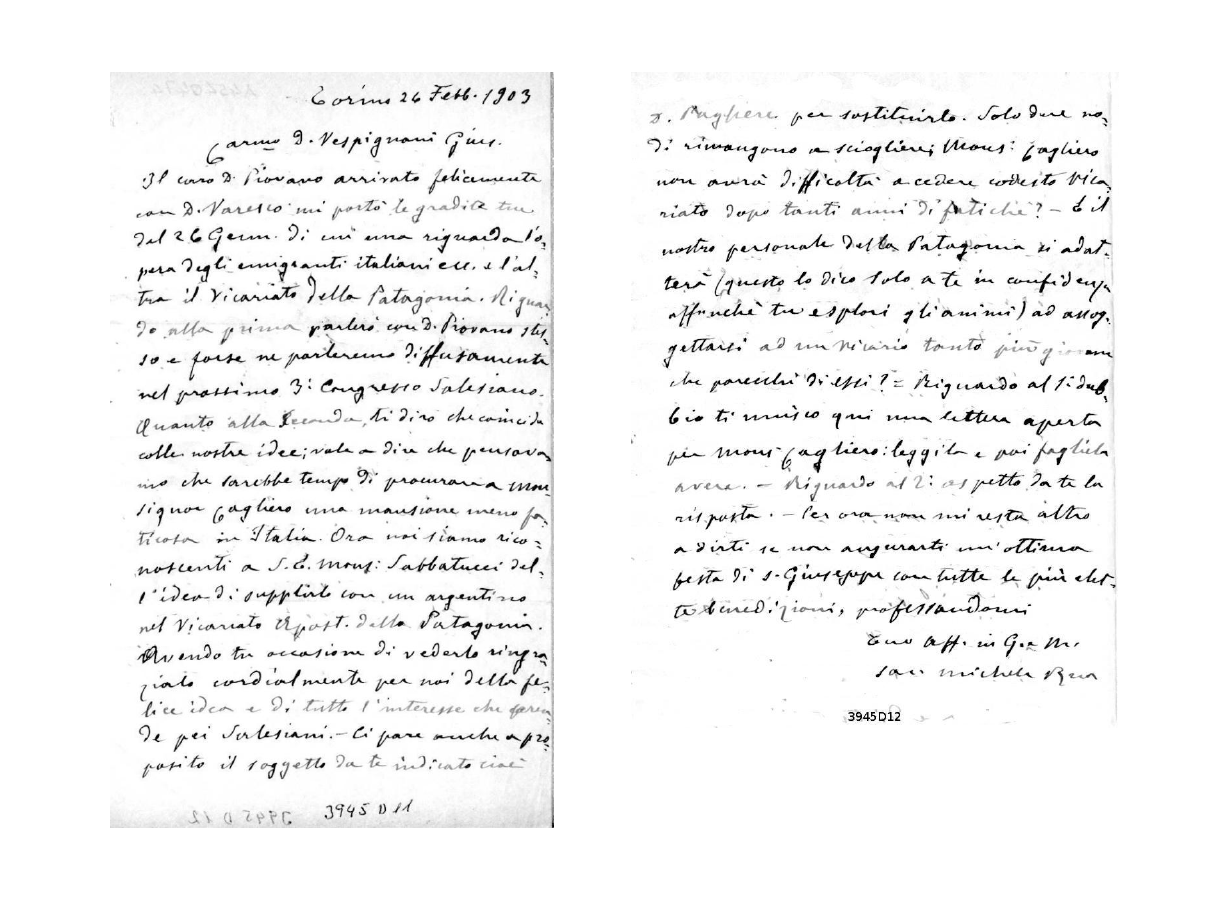 Torino 26 Febb. 1903
Carmo D. Vespignani Gius.
Il caro D. Piovano arrivato felicemente
con D. Varesco mi portò le gradite tue
del 26 Genn. di cui una riguarda l'o-
pera degli emigranti italiani ecc. e l'al-
tra il Vicariato della Patagonia. Riguar
do alla prima parlerò con D. Piovano stes-
so e forse ne parleremo diffusamente
nel prossimo 3º Congresso Salesiano.
Quanto alla seconda, ti dirò che coincide
colle nostre idee; vale a dire che pensava
mo che sarebbe tempo di procurare a mon
signor Cagliero una mansione meno fa-
ticosa in Italia. Ora noi siamo rico-
noscenti a S. E. Mons: Sabbatucci del-
l'idea di supplirlo con un argentino
nel Vicariato Apost. della Patagonia.
Avendo tu occasione di vederlo ringra
zialo cordialmente per noi della fe-
lice idea e di tutto l'interesse che pren
de pei Salesiani. - Ci pare anche a pro
posito il soggetto da te indicato cioè
3945 D 12 3945 D 11
D. Pagliere per sostituirlo. Solo due no-
di rimangono a sciogliere; Mons: Cagliero
non avrà difficoltà a cedere codesto Vica-
riato dopo tanti anni di fatiche? - E il
nostro personale della Patagonia si adat-
terà (questo lo dico solo a te in confidenza
affinchè tu esplori gli animi) ad assog-
gettarsi ad un Vicario tanto più giovane
che parecchi di essi? = Riguardo al 1º dub-
bio ti unisco qui una lettera aperta
per Mons Cagliero: leggila e poi fagliela
avere. - Riguardo al 2º aspetto da te la
risposta. - Per ora non mi resta altro
a dirti se non augurarti un'ottima
festa di S. Giuseppe con tutte le più elet-
te benedizioni, professandomi
Tuo aff. in G. e M.
Sac. Michele Rua
3945D12